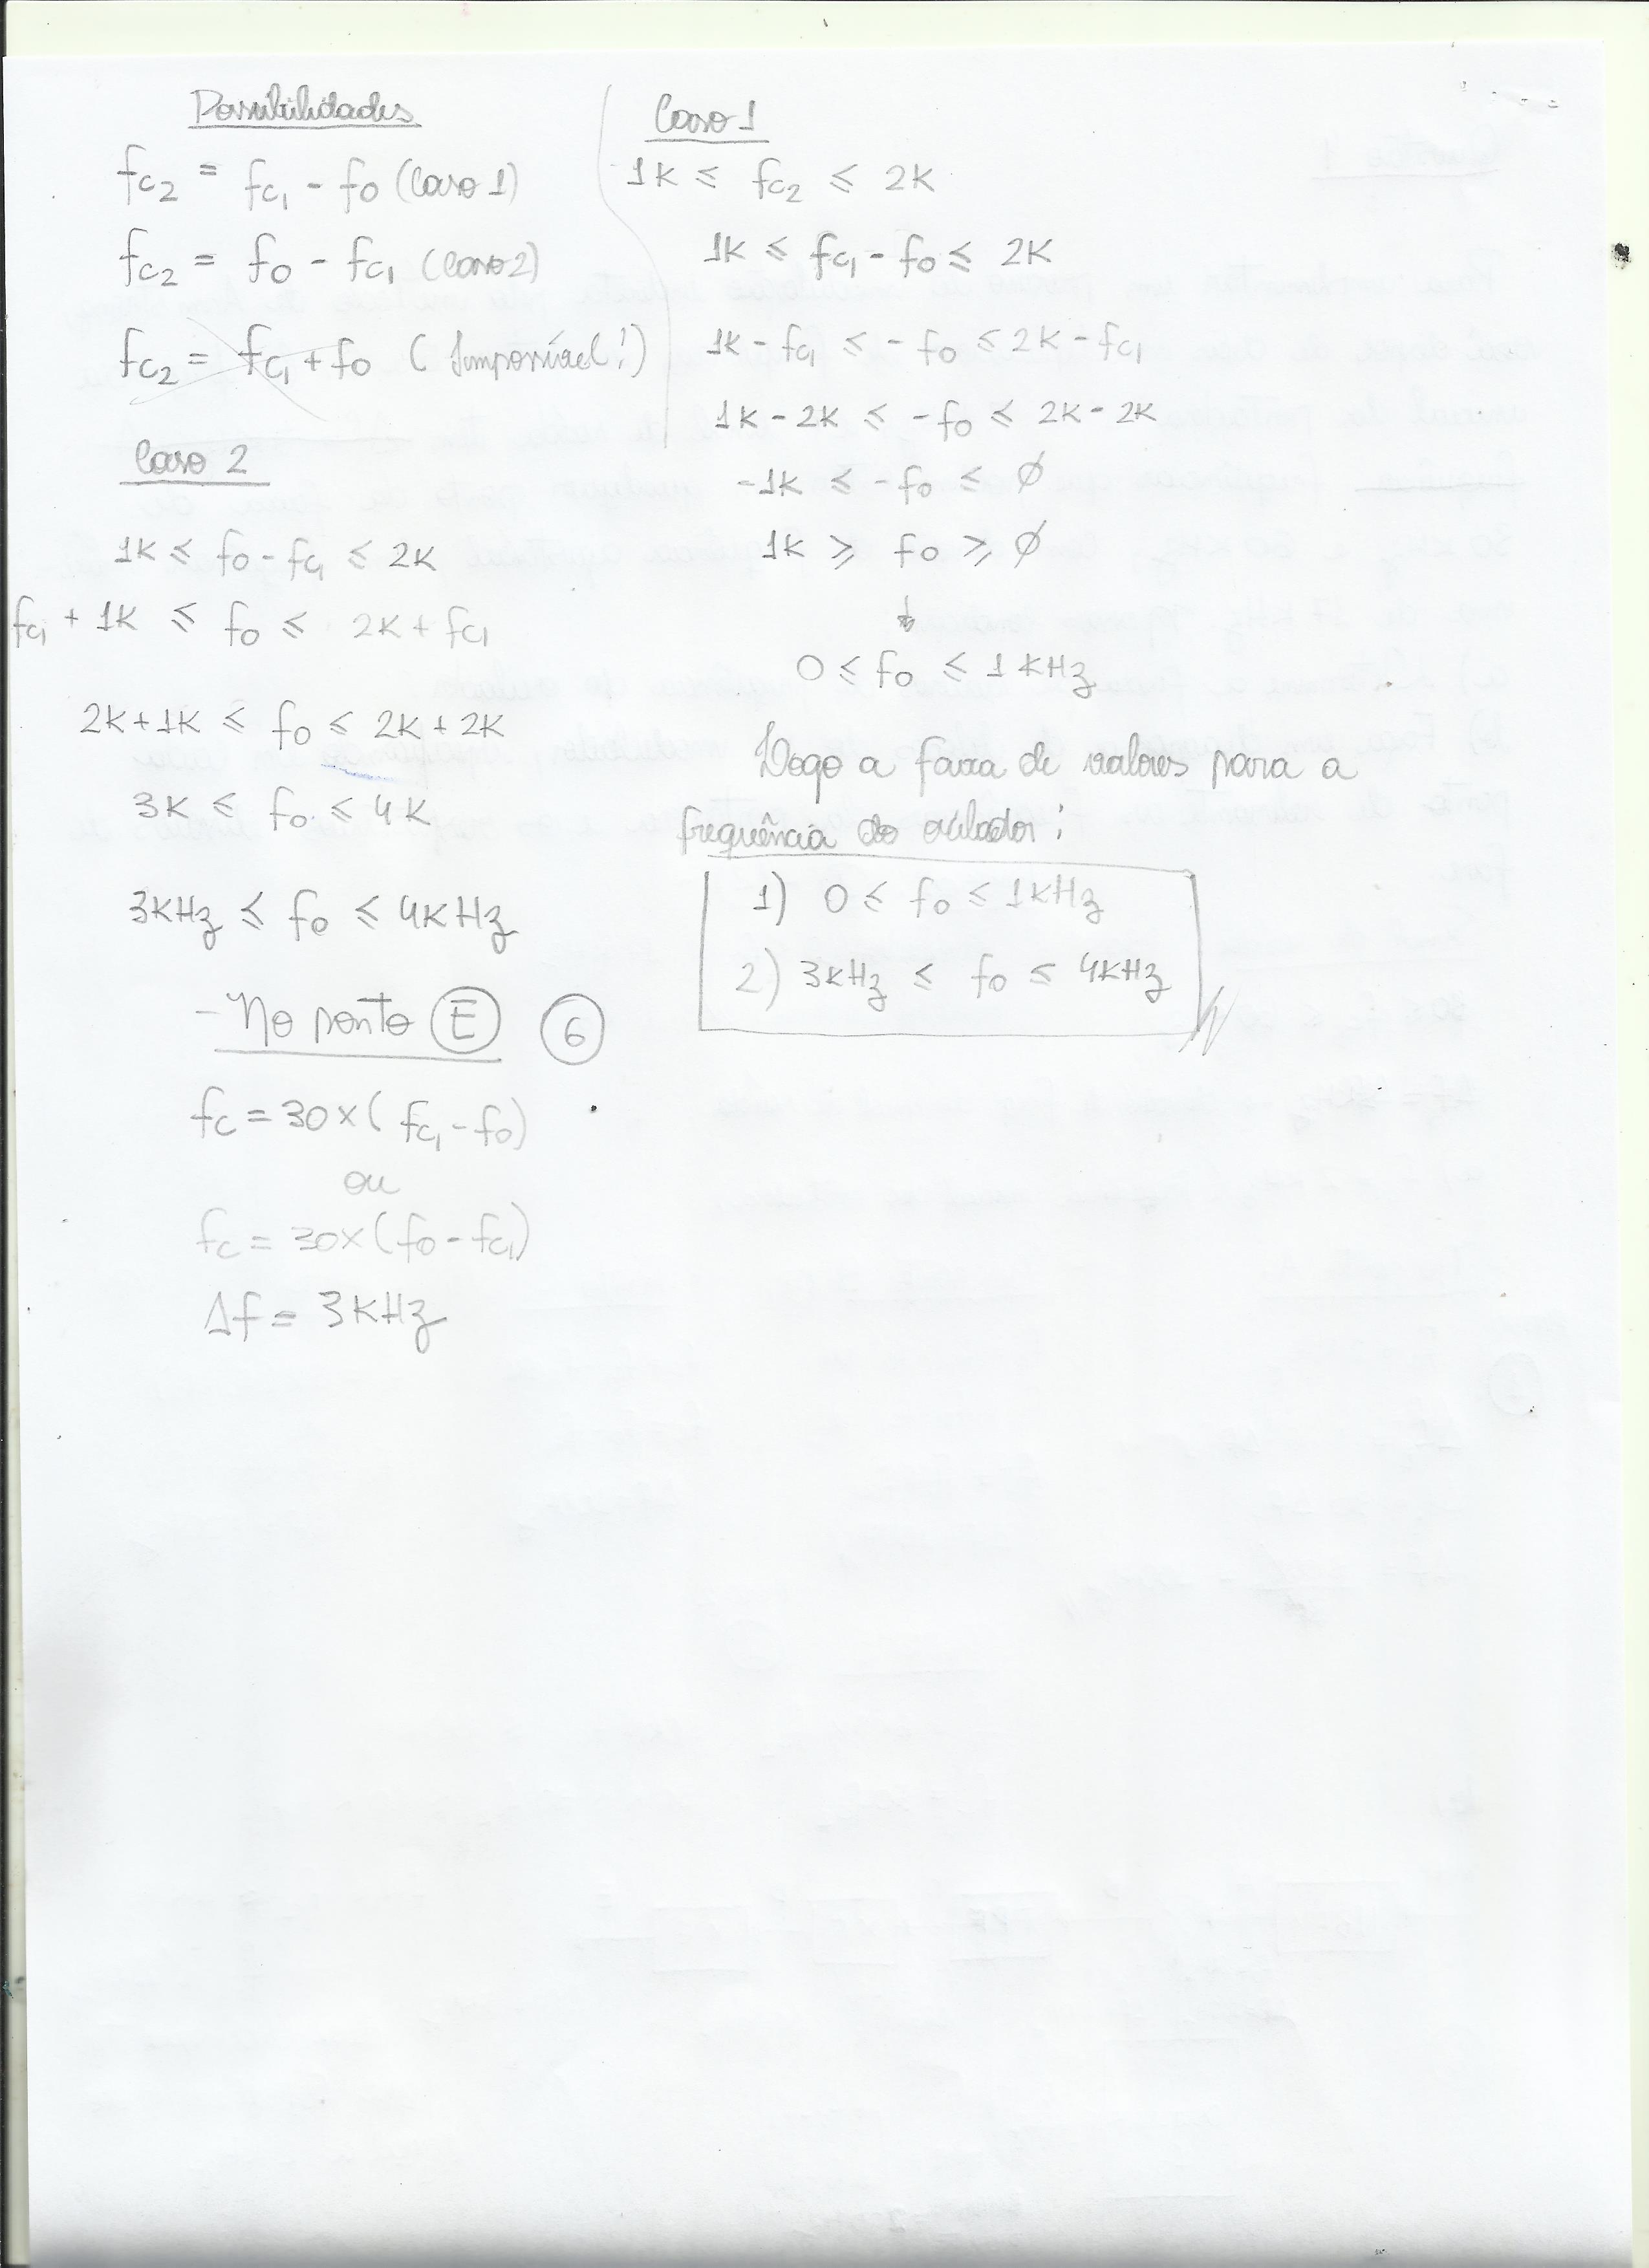 Possibilidades
fc2 = fc1 - fo (Caso 1)
fc2 = fo - fc1 (Caso 2)
fc2 = fc1 + fo (Impossível!)
Caso 2
1K ≤ fo - fc1 ≤ 2K
fc1 + 1K ≤ fo ≤ 2K + fc1
2K + 1K ≤ fo ≤ 2K + 2K
3K ≤ fo ≤ 4K
3KHz ≤ fo ≤ 4KHz
- No ponto E 6
fc = 30x(fc1 - fo)
ou
fc = 30x(fo - fc1)
Δf = 3KHz
Caso 1
1K ≤ fc2 ≤ 2K
1K ≤ fc1 - fo ≤ 2K
1K - fc1 ≤ - fo ≤ 2K - fc1
1K - 2K ≤ - fo ≤ 2K - 2K
-1K ≤ - fo ≤ ∅
1K ≥ fo ≥ ∅
↓
0 ≤ fo ≤ 1 KHz
Logo a faixa de valores para a
frequência do oscilador:
1) 0 ≤ fo ≤ 1KHz
2) 3KHz ≤ fo ≤ 4KHz